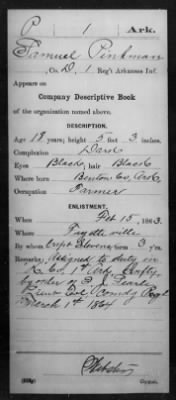 P 1 Ark.
Samuel Pinkman
Co. D, 1 Reg't Arkansas Inf.
Appears on
Company Descriptive Book
of the organization named above.
DESCRIPTION.
Age 18 years; height 5 feet 3 inches.
Complexion Dark
Eyes Black; hair Black
Where born Benton Co, Ark
Occupation Farmer
ENLISTMENT.
When Feb 15, 1863.
Where Fayetteville
By whom Capt term 3 y'rs.
Remarks: Assigned to duty in
Co. 1st Ark
by order of
Lieut Col, Comdg Regt
March 1st 1864
Copyist.